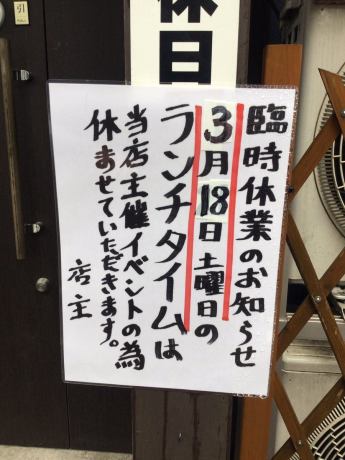 休日
臨時休業のお知らせ
3月18日土曜日の
ランチタイムは
当店主催イベントの為
休ませていただきます。
店主